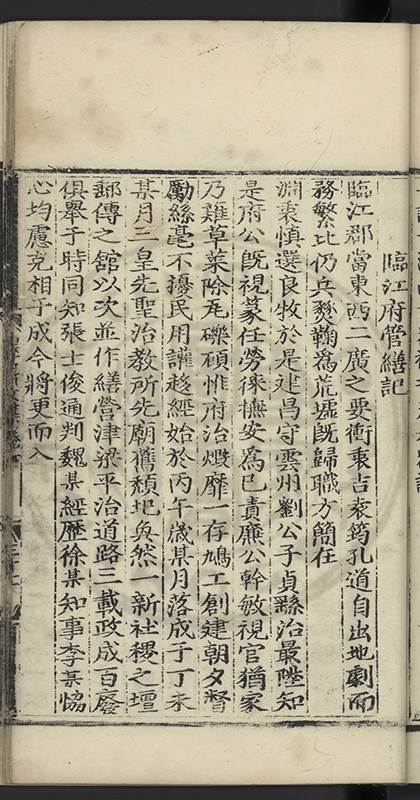 臨江府管繕記
臨江郡當東西二廣之要衝東吉袤筠孔道自出地劇而
務繁比仍兵燹鞠為荒墟既歸職方簡在
淵衷慎選良牧於是建昌守雲州劉公子貞縣治最陞知
是府公既視篆任勞徠撫安為已責廉公幹敏視官猶家
乃薙草萊除瓦礫碩惟府治燬靡一存鳩工創建朝夕督
勵絲毫不擾民用讙趍經始於丙午歲某月落成于丁未
某月三皇先聖治教所先廟舊頹圮奐然一新社稷之壇
郵傳之舘以次並作繕營津梁平治道路三載政成百廢
俱舉于時同知張士俊通判魏某經歷徐某知事李某恊
心均慮克相于成今將更而入